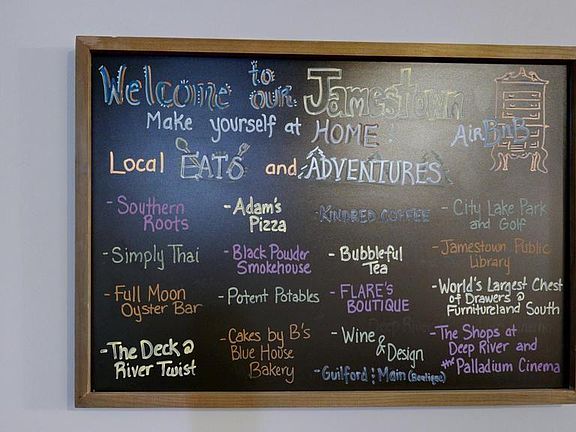 Welcome to our Jamestown
Make yourself at HOME
AirBnB
Local EATS and ADVENTURES
- Southern Roots
- Simply Thai
- Full Moon
Oyster Bar
- The Deck @
River Twist
- Adam's
Pizza
- Black Powder
Smokehouse
- Potent Potables
- Cakes by B's
Blue House
Bakery
- KINDRED COFFEE
- Bubbleful
Tea
- FLARE'S
BOUTIQUE
- Wine
& Design
- Guilford & Main (Boutique)
- City Lake Park
and Golf
- Jamestown Public
Library
- World's Largest Chest
of Drawers @
Furnitureland South
- The Shops at
Deep River and
the Palladium Cinema